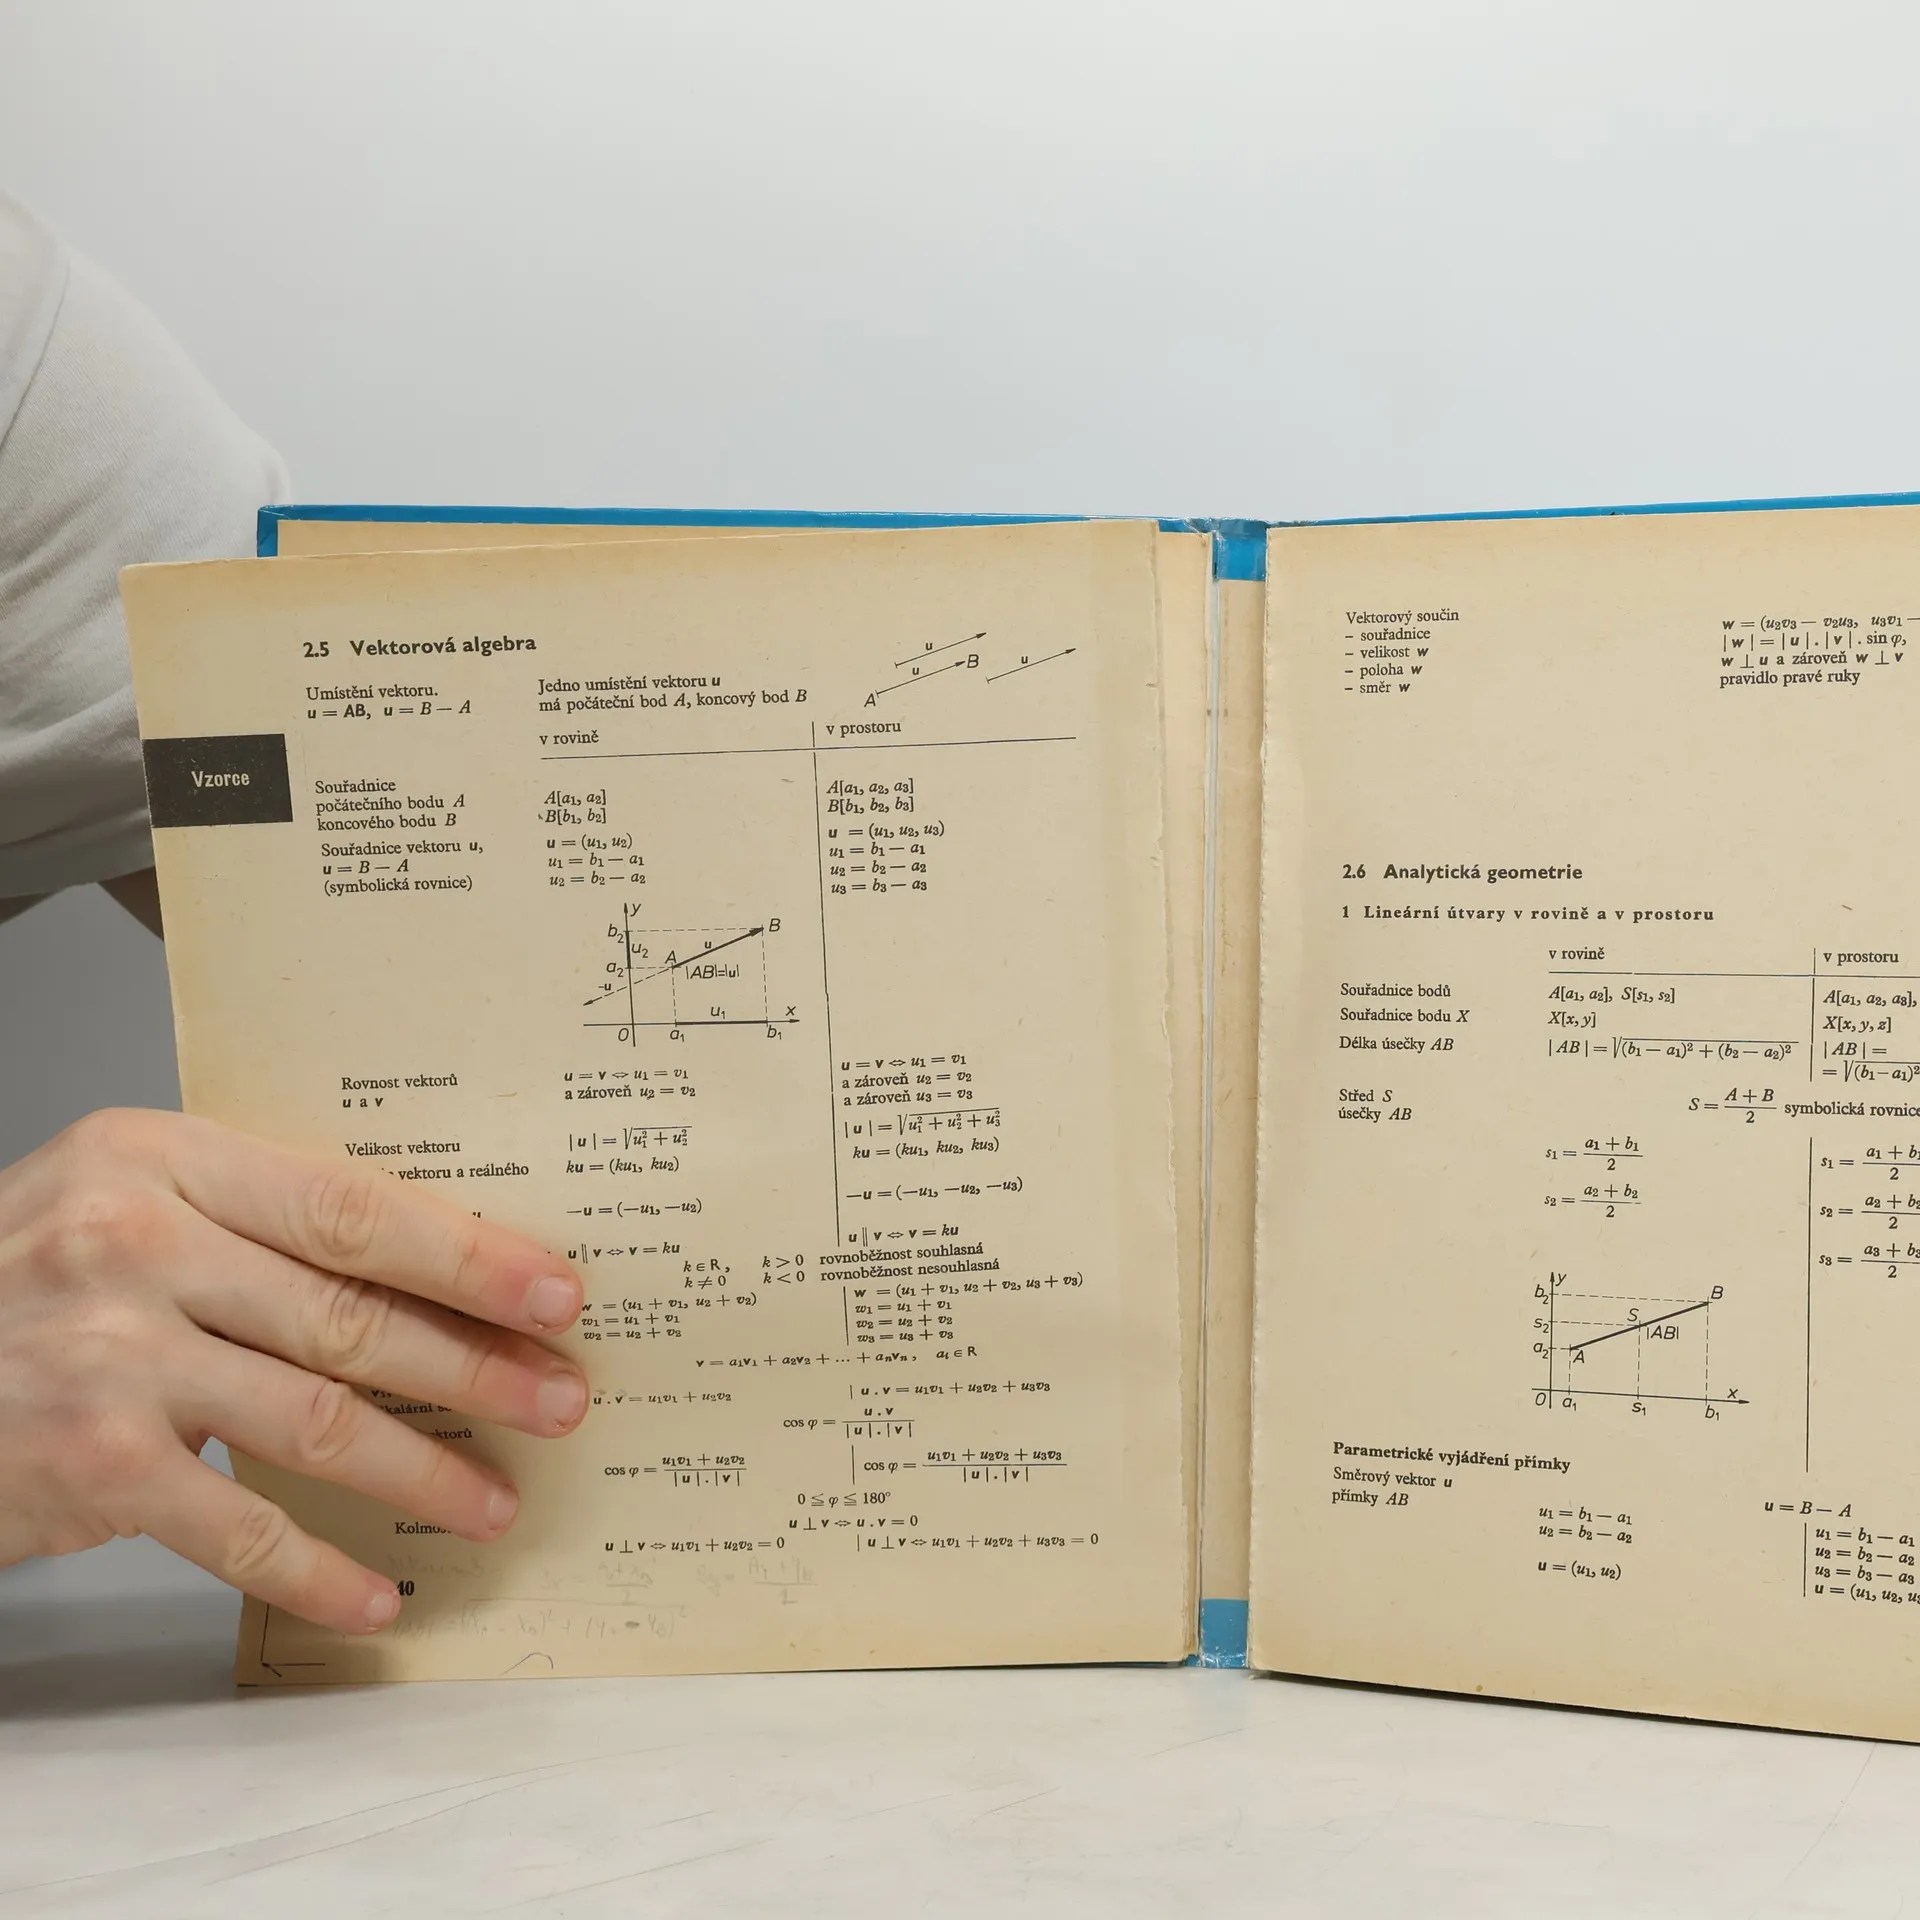 2.5 Vektorová algebra
Umístění vektoru.
u = AB, u = B — A
Jedno umístění vektoru u
má počáteční bod A, koncový bod B
u
u
u
A
B
v rovině
v prostoru
Vzorce
Souřadnice
počátečního bodu A
koncového bodu B
A[a₁, a₂]
B[b₁, b₂]
A[a₁, a₂, a₃]
B[b₁, b₂, b₃]
Souřadnice vektoru u,
u = B — A
(symbolická rovnice)
u = (u₁, u₂)
u₁ = b₁ — a₁
u₂ = b₂ — a₂
u = (u₁, u₂, u₃)
u₁ = b₁ — a₁
u₂ = b₂ — a₂
u₃ = b₃ — a₃
y
b₂
u₂
a₂
-u
A
u
B
|AB|=|u|
u₁
x
O
a₁
b₁
Rovnost vektorů
u a v
u = v ⇔ u₁ = v₁
a zároveň u₂ = v₂
u = v ⇔ u₁ = v₁
a zároveň u₂ = v₂
a zároveň u₃ = v₃
Velikost vektoru
|u| = √(u₁² + u₂²)
|u| = √(u₁² + u₂² + u₃²)
vektoru a reálného
ku = (ku₁, ku₂)
ku = (ku₁, ku₂, ku₃)
—u = (—u₁, —u₂)
—u = (—u₁, —u₂, —u₃)
u ∥ v ⇔ v = ku
u ∥ v ⇔ v = ku
k ∈ R, k > 0 rovnoběžnost souhlasná
k ≠ 0 k < 0 rovnoběžnost nesouhlasná
w = (u₁ + v₁, u₂ + v₂)
w₁ = u₁ + v₁
w₂ = u₂ + v₂
w = (u₁ + v₁, u₂ + v₂, u₃ + v₃)
w₁ = u₁ + v₁
w₂ = u₂ + v₂
w₃ = u₃ + v₃
v = a₁v₁ + a₂v₂ + ... + aₙvₙ, aᵢ ∈ R
u . v = u₁v₁ + u₂v₂
u . v = u₁v₁ + u₂v₂ + u₃v₃
cos φ = u . v / |u| . |v|
cos φ = u₁v₁ + u₂v₂ / |u| . |v|
cos φ = u₁v₁ + u₂v₂ + u₃v₃ / |u| . |v|
0 ≦ φ ≦ 180°
u ⊥ v ⇔ u . v = 0
u ⊥ v ⇔ u₁v₁ + u₂v₂ = 0
u ⊥ v ⇔ u₁v₁ + u₂v₂ + u₃v₃ = 0
40
Vektorový součin
– souřadnice
– velikost w
– poloha w
– směr w
w = (u₂v₃ — v₂u₃, u₃v₁ —
|w| = |u| . |v| . sin φ,
w ⊥ u a zároveň w ⊥ v
pravidlo pravé ruky
2.6 Analytická geometrie
1 Lineární útvary v rovině a v prostoru
v rovině
v prostoru
Souřadnice bodů
A[a₁, a₂], S[s₁, s₂]
A[a₁, a₂, a₃],
Souřadnice bodu X
X[x, y]
X[x, y, z]
Délka úsečky AB
|AB| = √((b₁ — a₁)² + (b₂ — a₂)²)
|AB| =
= √(b₁ — a₁)²
Střed S
úsečky AB
S = A + B / 2 symbolická rovnice
s₁ = a₁ + b₁ / 2
s₂ = a₂ + b₂ / 2
s₁ = a₁ + b₁ / 2
s₂ = a₂ + b₂ / 2
s₃ = a₃ + b₃ / 2
y
b₂
s₂
a₂
A
S
B
|AB|
x
O
a₁
s₁
b₁
Parametrické vyjádření přímky
Směrový vektor u
přímky AB
u = B — A
u₁ = b₁ — a₁
u₂ = b₂ — a₂
u = (u₁, u₂)
u₁ = b₁ — a₁
u₂ = b₂ — a₂
u₃ = b₃ — a₃
u = (u₁, u₂, u₃